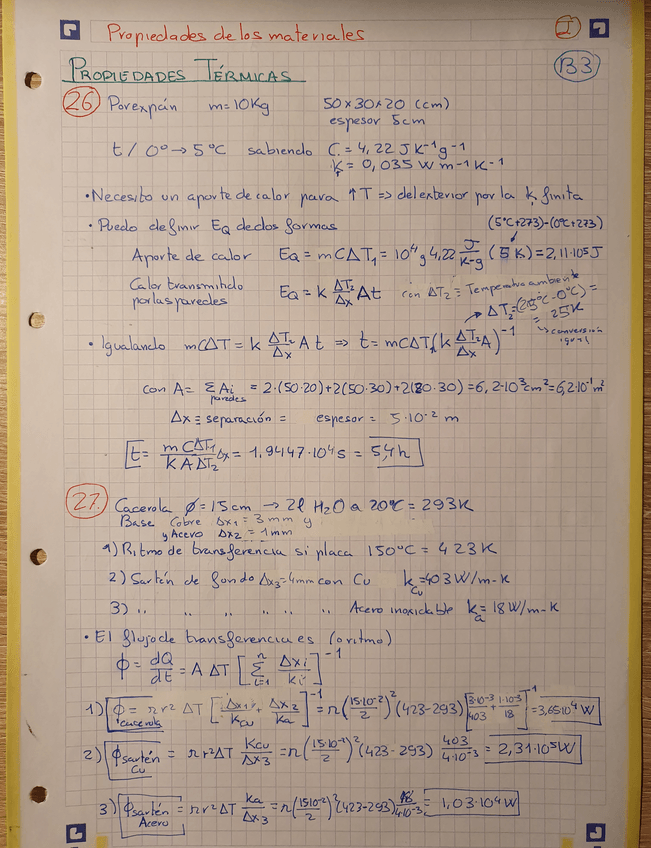 Propiedades de los materiales
I
B3
PROPIEDADES TÉRMICAS
26 Porexpán m=10Kg 50×30×20 (cm)
espesor 5cm
t / 0º → 5ºC sabiendo C = 4,22 J K⁻¹g⁻¹
k = 0,035 W m⁻¹ K⁻¹
• Necesito un aporte de calor para ↑T => del exterior por la k finita
• Puedo definir EQ de dos formas (5ºC+273)-(0ºC+273)
Aporte de calor EQ = mCΔT₁ = 10⁴g 4,22 J/K-g (5 K) = 2,11·10⁵ J
Calor transmitido por las paredes EQ = k ΔT₂/Δx A t con ΔT₂ ≡ Temperatura ambiente
ΔT₂ = (25ºC-0ºC) = = 25K
↳ conversión igual
• Igualando mCΔT = k ΔT₂/Δx A t => t = mCΔT₁ (k ΔT₂/Δx A)⁻¹
con A = Σ Ai = 2·(50·20)+2(50·30)+2(20·30) = 6,2·10³cm² = 6,2·10⁻¹m²
paredes
Δx ≡ separación = espesor = 5·10⁻² m
t = mCΔT₁/kAΔT₂ Δx = 1,9447·10⁴ s = 5,4 h
27. Cacerola ϕ = 15 cm → 2l H₂O a 20ºC = 293K
Base Cobre Δx₁ = 3mm y
y Acero Δx₂ = 1mm
1) Ritmo de transferencia si placa 150ºC = 423K
2) Sartén de fondo Δx₃=4mm con Cu kCu = 403 W/m-K
3) " " " " " Acero inoxidable ka = 18 W/m-K
• El flujo de transferencia es (o ritmo)
ϕ = dQ/dt = A ΔT [Σⁿᵢ₌₁ Δxi/ki]⁻¹
1) ϕ cacerola = πr² ΔT [Δx₁/kCu + Δx₂/ka]⁻¹ = π(15·10⁻²/2)² (423-293) [3·10⁻³/403 + 1·10⁻³/18]⁻¹ = 3,65·10⁴ W
2) ϕ sartén Cu = πr²ΔT kCu/Δx₃ = π(15·10⁻²/2)² (423-293) 403/4·10⁻³ = 2,31·10⁵ W
3) ϕ sartén Acero = πr²ΔT ka/Δx₃ = π(15·10⁻²/2)² (423-293) 18/4·10⁻³ = 1,03·10⁴ W